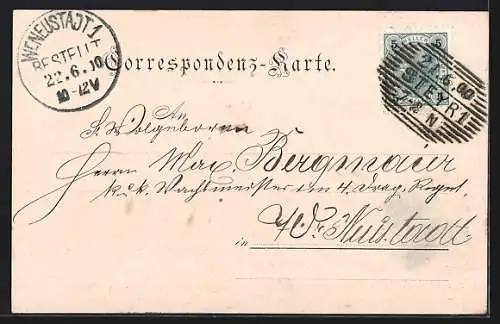 WR.NEUSTADT 1.
BESTELLT
22.6.00
10-12V
Correspondenz-Karte.
5 5
21.6.00
STEYR 1
7-8 N
An
S. Wolgeboren
Herrn Max Bergmaier
k.u.k. Wachtmeister des 4. Drag. Regmt.
in Wr Neustadt